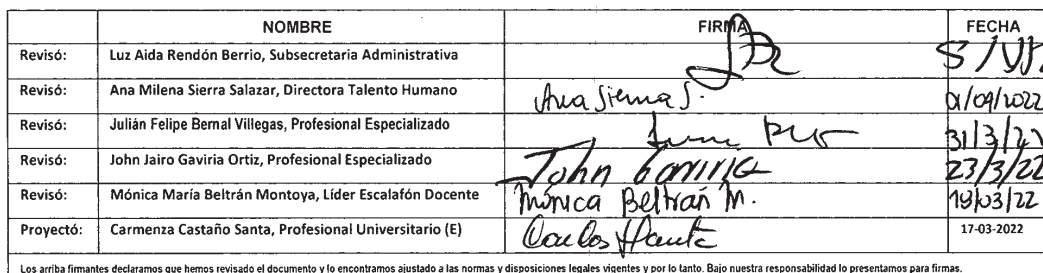 NOMBRE FIRMA FECHA
Revisó: Luz Aida Rendón Berrio, Subsecretaria Administrativa
Revisó: Ana Milena Sierra Salazar, Directora Talento Humano Ana Sierra S. 01/04/2022
Revisó: Julián Felipe Bernal Villegas, Profesional Especializado 31/3/22
Revisó: John Jairo Gaviria Ortiz, Profesional Especializado John Gaviria 23/3/22
Revisó: Mónica María Beltrán Montoya, Líder Escalafón Docente Mónica Beltrán M. 18/03/22
Proyectó: Carmenza Castaño Santa, Profesional Universitario (E) 17-03-2022
Los arriba firmantes declaramos que hemos revisado el documento y lo encontramos ajustado a las normas y disposiciones legales vigentes y por lo tanto. Bajo nuestra responsabilidad lo presentamos para firmas.